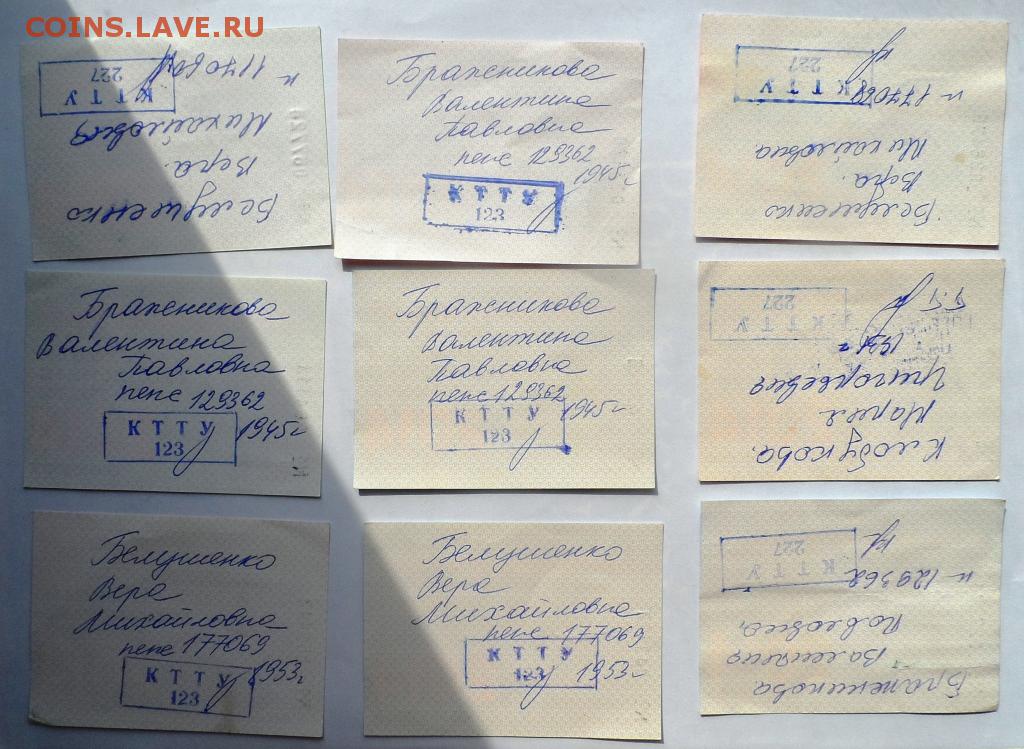 COINS.LAVE.RU
Белушенко
Вера
Михайловна
п 177060
КТТУ
227
Бражсникова
Валентина
Павловна
пенс 129362
1945г
КТТУ
123
Белушенко
Вера.
Михайловна
п 177060
КТТУ
227
Бражсникова
Валентина
Павловна
пенс 129362
1945г
КТТУ
123
Бражсникова
Валентина
Павловна
пенс 129362
1945г
КТТУ
123
Клобукова.
Мария
Григорьевна
КТТУ
227
Белушенко
Вера
Михайловна
пенс 177069
1953г
КТТУ
123
Белушенко
Вера
Михайловна
пенс 177069
1953г
КТТУ
123
Бражникова
Валентина
Павловна,
п 129362
КТТУ
227